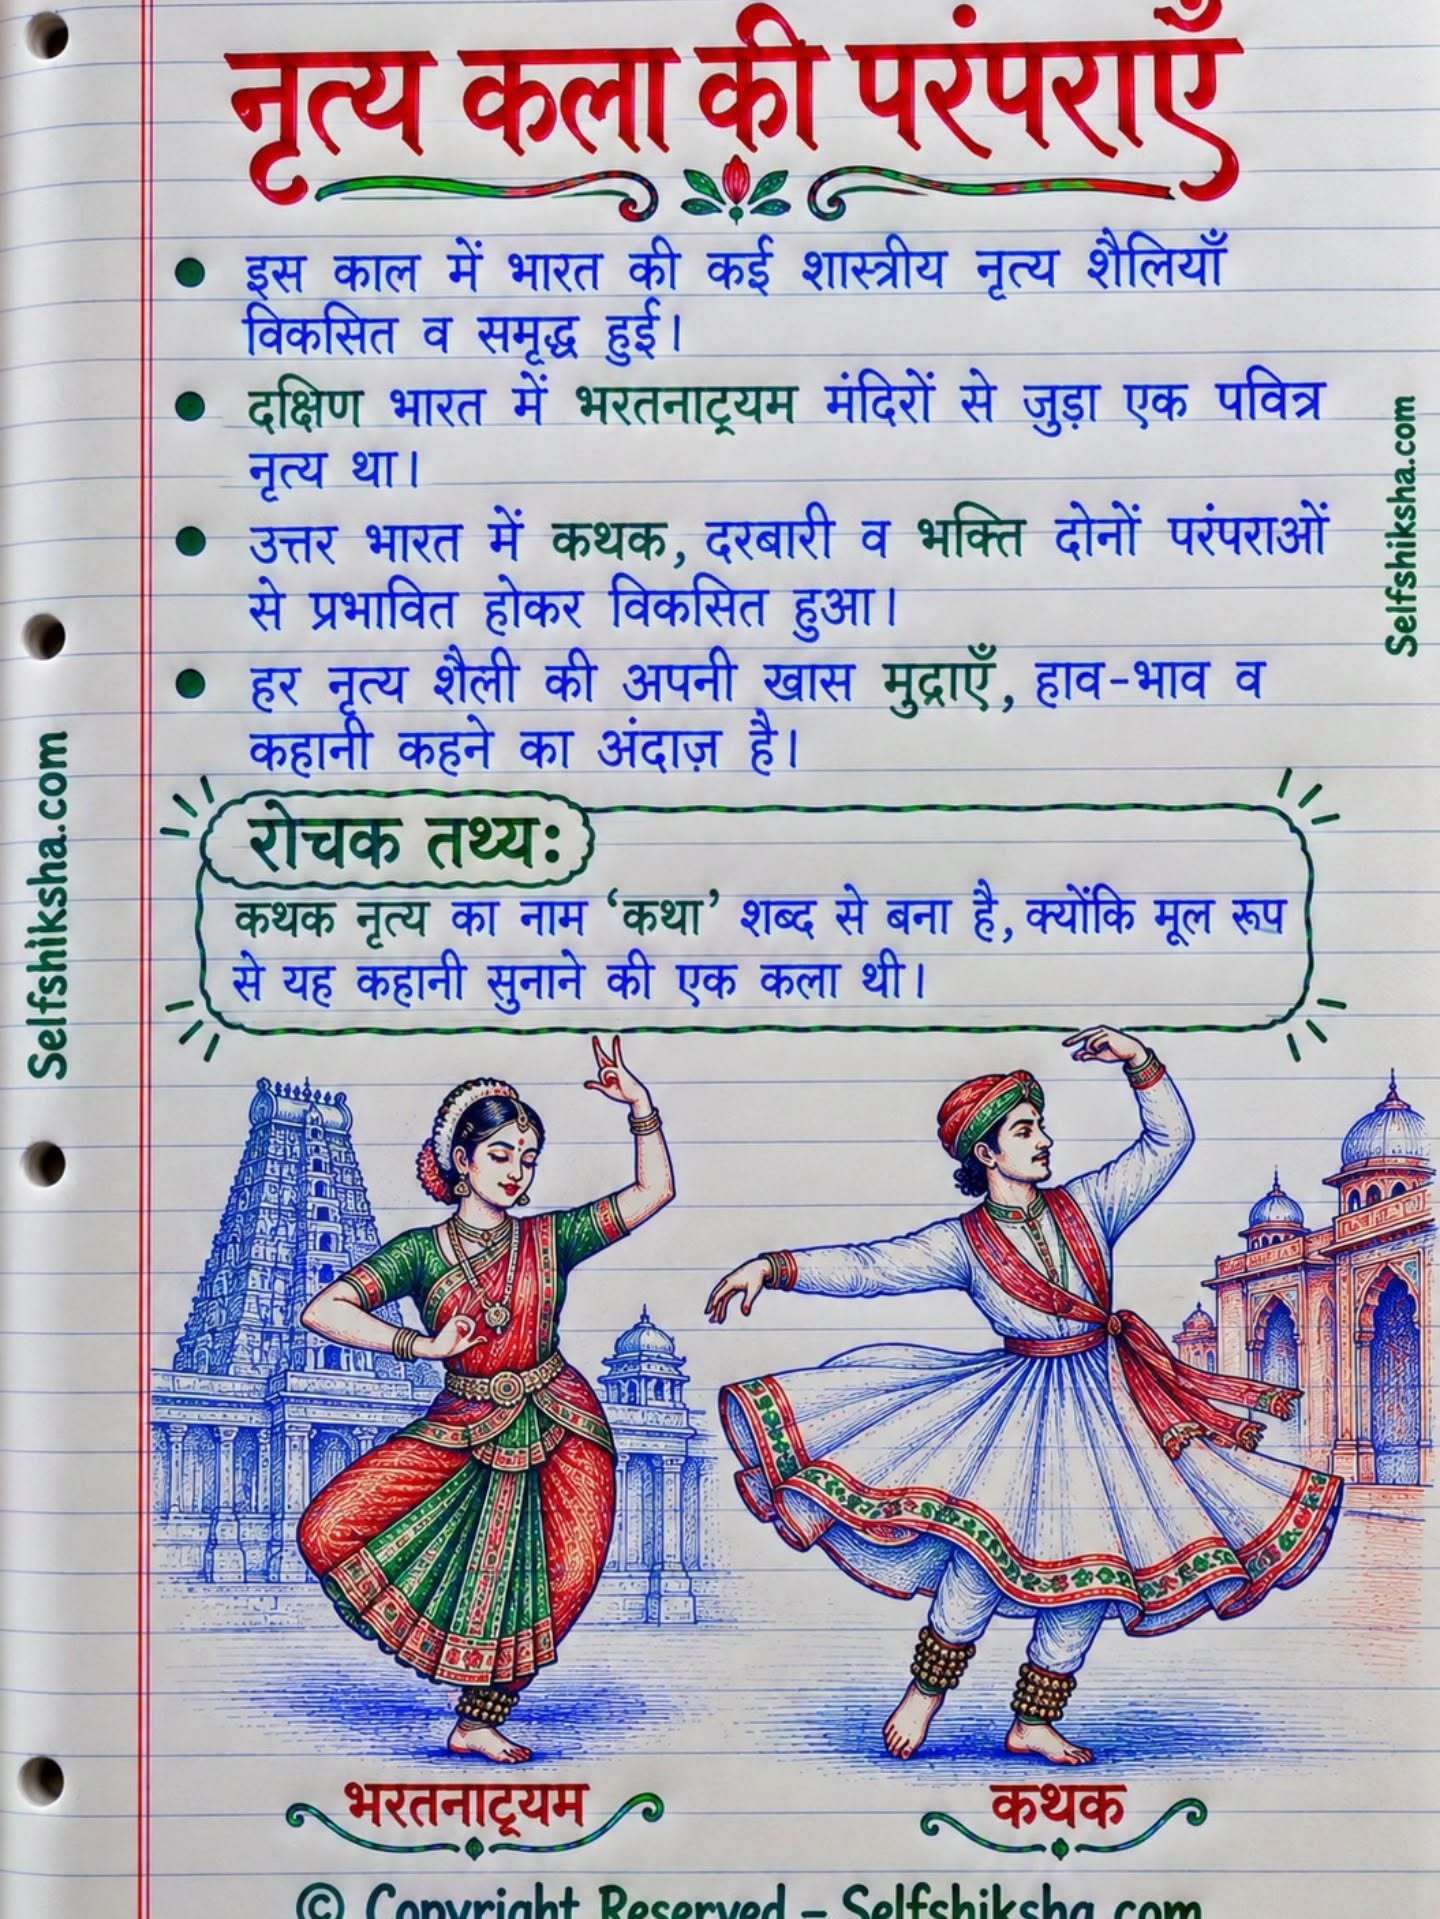 नृत्य कला की परंपराएँ
• इस काल में भारत की कई शास्त्रीय नृत्य शैलियाँ
विकसित व समृद्ध हुई।
• दक्षिण भारत में भरतनाट्यम मंदिरों से जुड़ा एक पवित्र
नृत्य था।
• उत्तर भारत में कथक, दरबारी व भक्ति दोनों परंपराओं
से प्रभावित होकर विकसित हुआ।
• हर नृत्य शैली की अपनी खास मुद्राएँ, हाव-भाव व
कहानी कहने का अंदाज़ है।
रोचक तथ्य:
कथक नृत्य का नाम ‘कथा’ शब्द से बना है, क्योंकि मूल रूप
से यह कहानी सुनाने की एक कला थी।
भरतनाट्यम
कथक
© Copyright Reserved - Selfshiksha.com
Selfshiksha.com
Selfshiksha.com